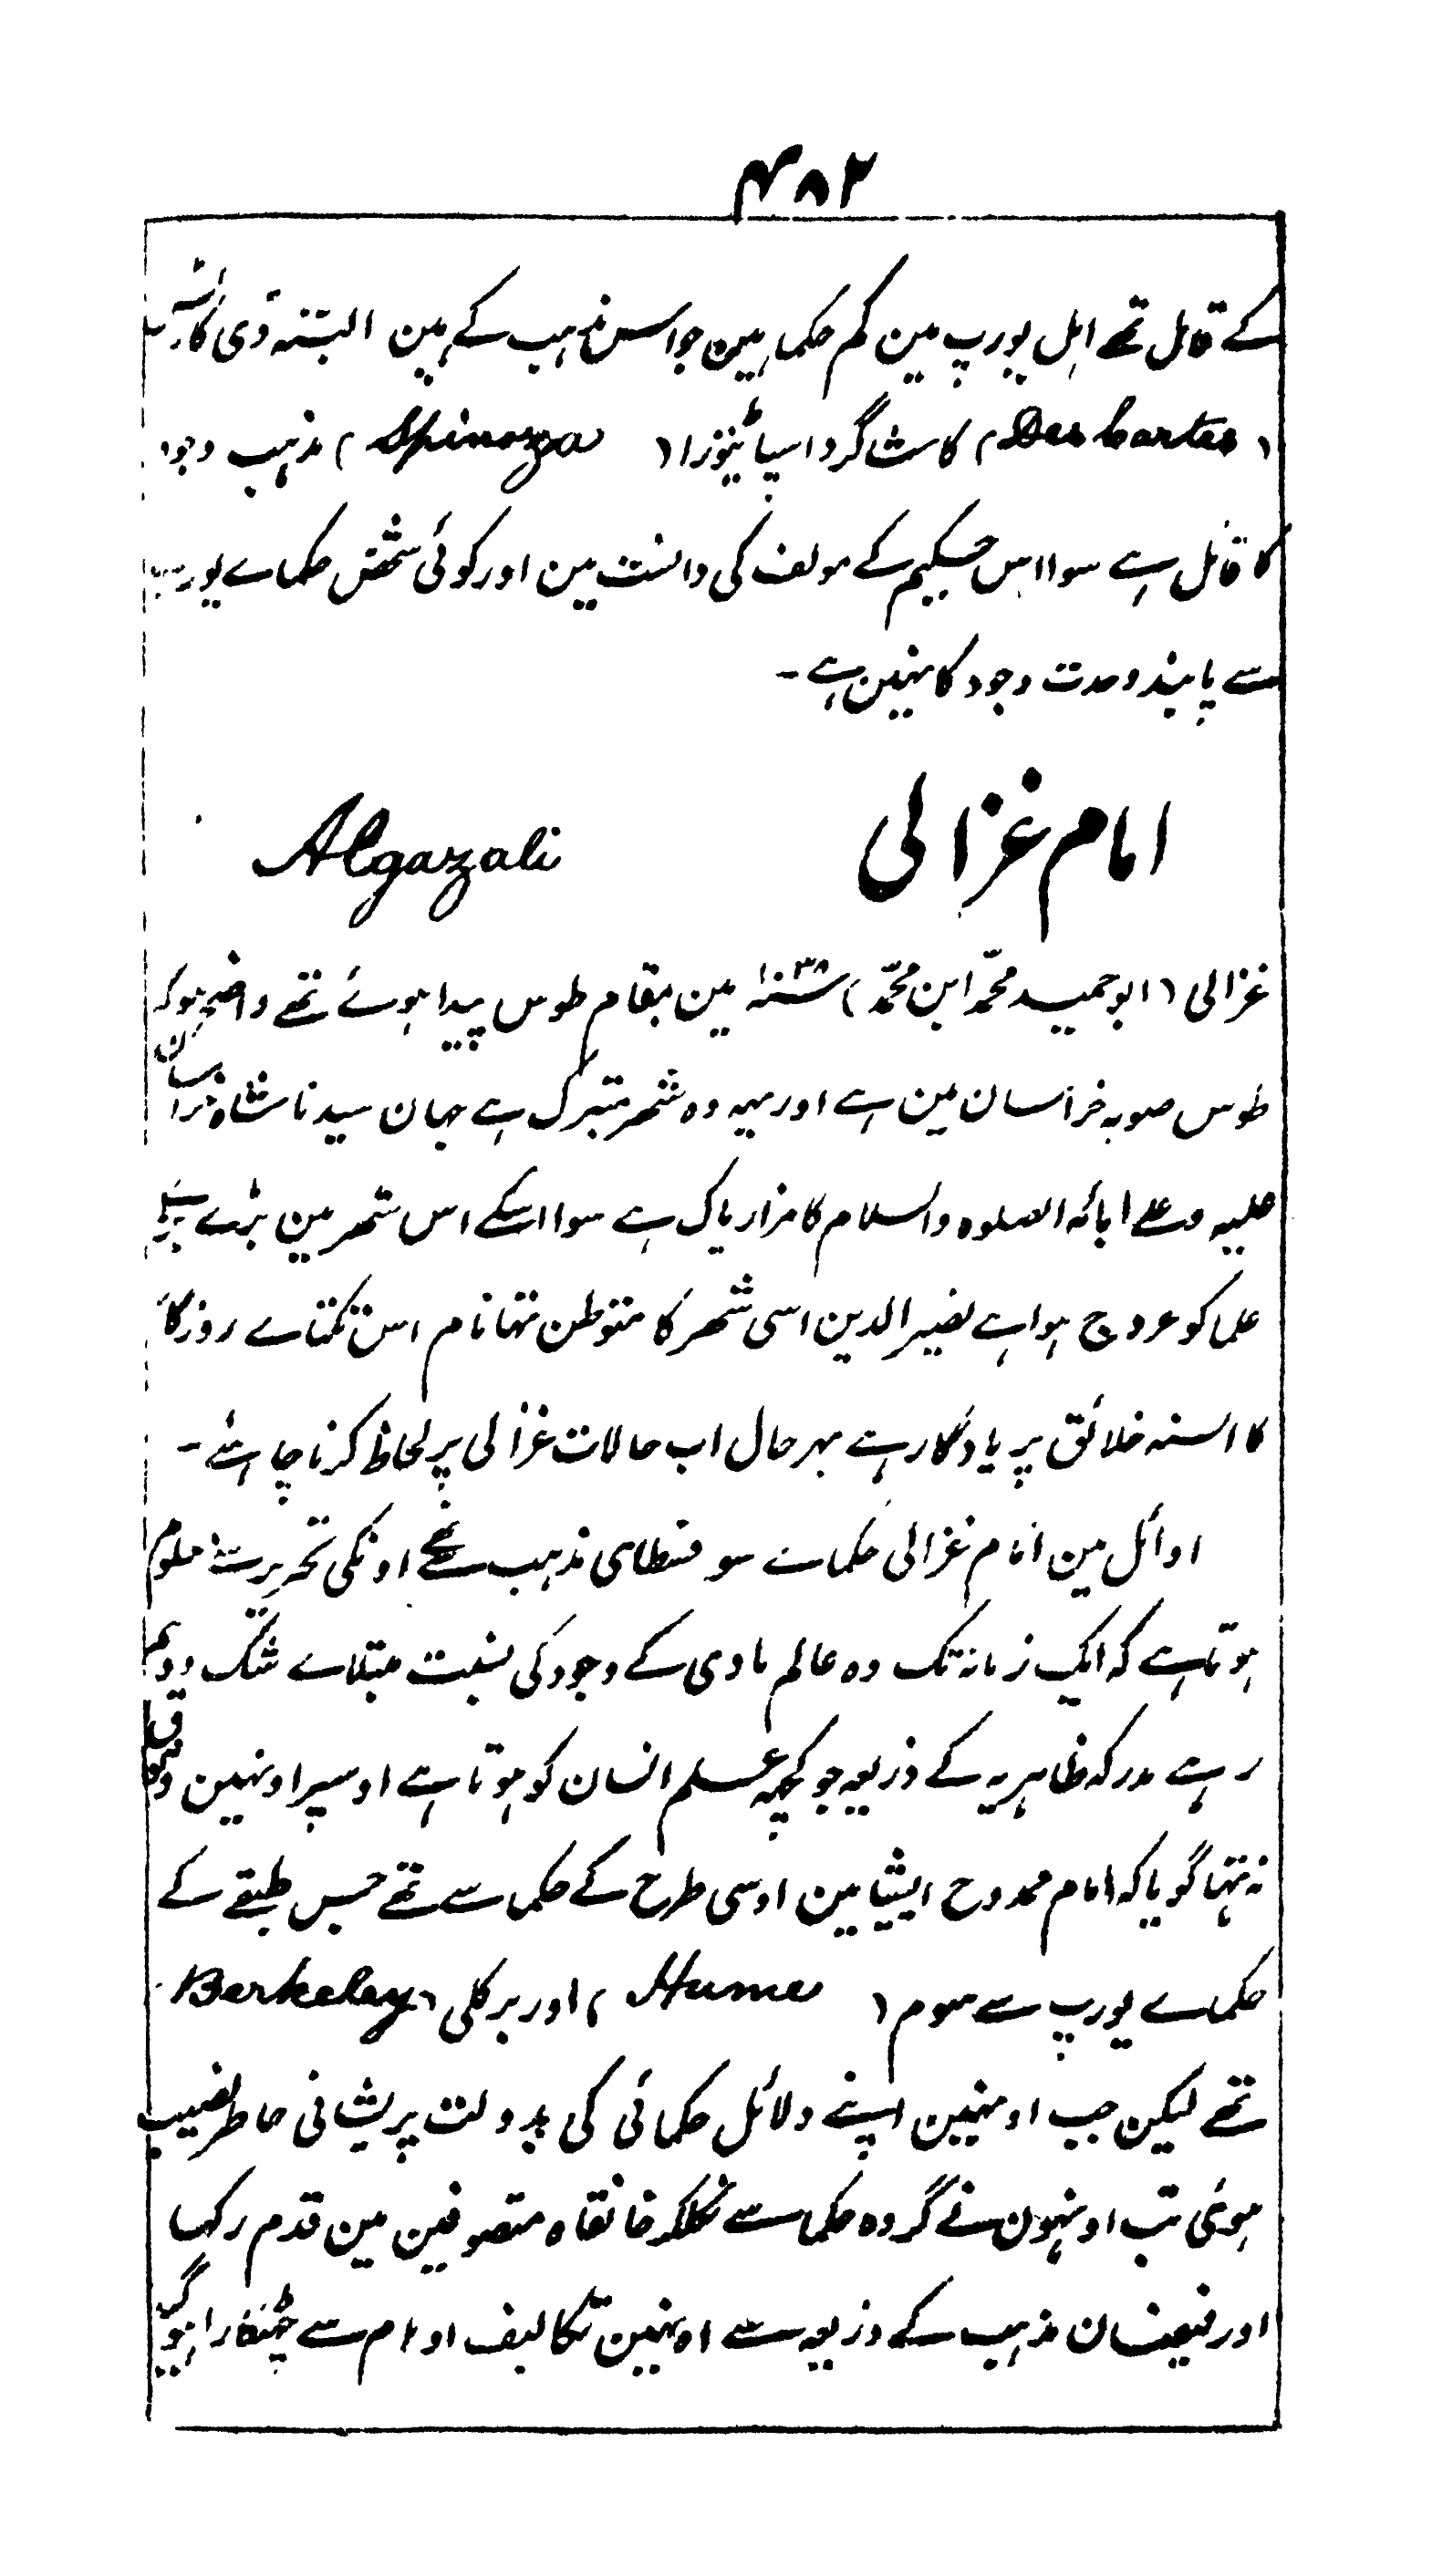 ۴۸۲
کے قائل تھے اہل یورپ مین کم حکما ہین جو اس مذہب کے ہین البتہ ڈی کارٹ
(Des Cartes) کا شاگرد اسپائینوزا (Spinoza) مذہب وجود
کا قائل ہے سوا اس حکیم کے مولف کی دانست مین اور کوئی شخص حکماے یورپ
سے پابند وحدت وجود کا نہین ہے ۔
امام غزالی Algazali
غزالی (ابو حمید محمّد ابن محمّد) ۱۰۳۸ سنہ مین بمقام طوس پیدا ہوئے تھے واضح ہو کہ
طوس صوبہ خراسان مین ہے اور یہہ وہ شہر متبرک ہے جہان سیدنا شاہ خراسان
علیہ وعلے ابائہ الصلوہ والسلام کا مزار پاک ہے سوا اسکے اس شہر مین بڑے بڑے
علما کو عروج ہوا ہے نصیر الدین اسی شہر کا متوطن تہا نام اس یکتاے روزگار
کا السنہ خلائق پر یادگار ہے بہر حال اب حالات غزالی پر لحاظ کرنا چاہئے ۔
اوائل مین امام غزالی حکماے سوفسطای مذہب سے تھے اونکی تحریر سے معلوم
ہوتا ہے کہ ایک زمانہ تک وہ عالم مادی کے وجود کی نسبت مبتلاے شک و وہم
رہے مدرکہ ظاہریہ کے ذریعہ جو کچہہ علم انسان کو ہوتا ہے اوسپر اونہین وثوق
نہ تہا گویا کہ امام ممدوح ایشیا مین اوسی طرح کے حکما سے تھے جس طبقے کے
حکماے یورپ سے ہیوم (Hume) اور برکلی (Berkeley
تھے لیکن جب اونہین اپنے دلائل حکمائی کی بدولت پریشانی خاطر نصیب
ہوئی تب اونہون نے گروہ حکما سے نکلکر خانقاہ متصوفین مین قدم رکہا
اور فیضان مذہب کے ذریعہ سے اونہین تکالیف اوہام سے چھٹکارا ہو گیا